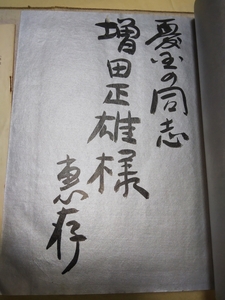 憂国の同志
増田正雄様
恵存